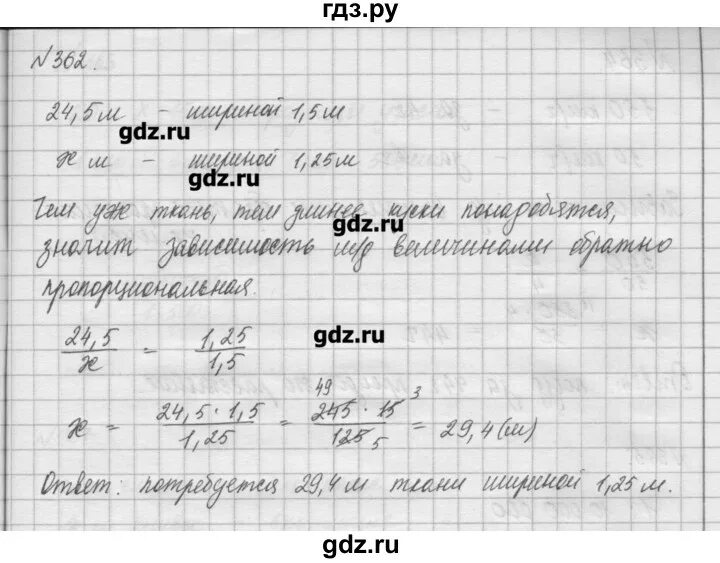 гдз.ру
№362.
24,5 м – шириной 1,5 м
gdz.ru
х м – шириной 1,25 м
gdz.ru
Чем уж ткань, тем длиннее куски понадобятся,
gdz.ru
значит зависимость м/д величинами обратно
пропорциональная.
24,5/х = 1,25/1,5
gdz.ru
х = 24,5 · 1,5 / 1,25 = 245 49 · 15 3 / 125 5 = 29,4 (м)
Ответ: потребуется 29,4 м ткани шириной 1,25 м.
gdz.ru